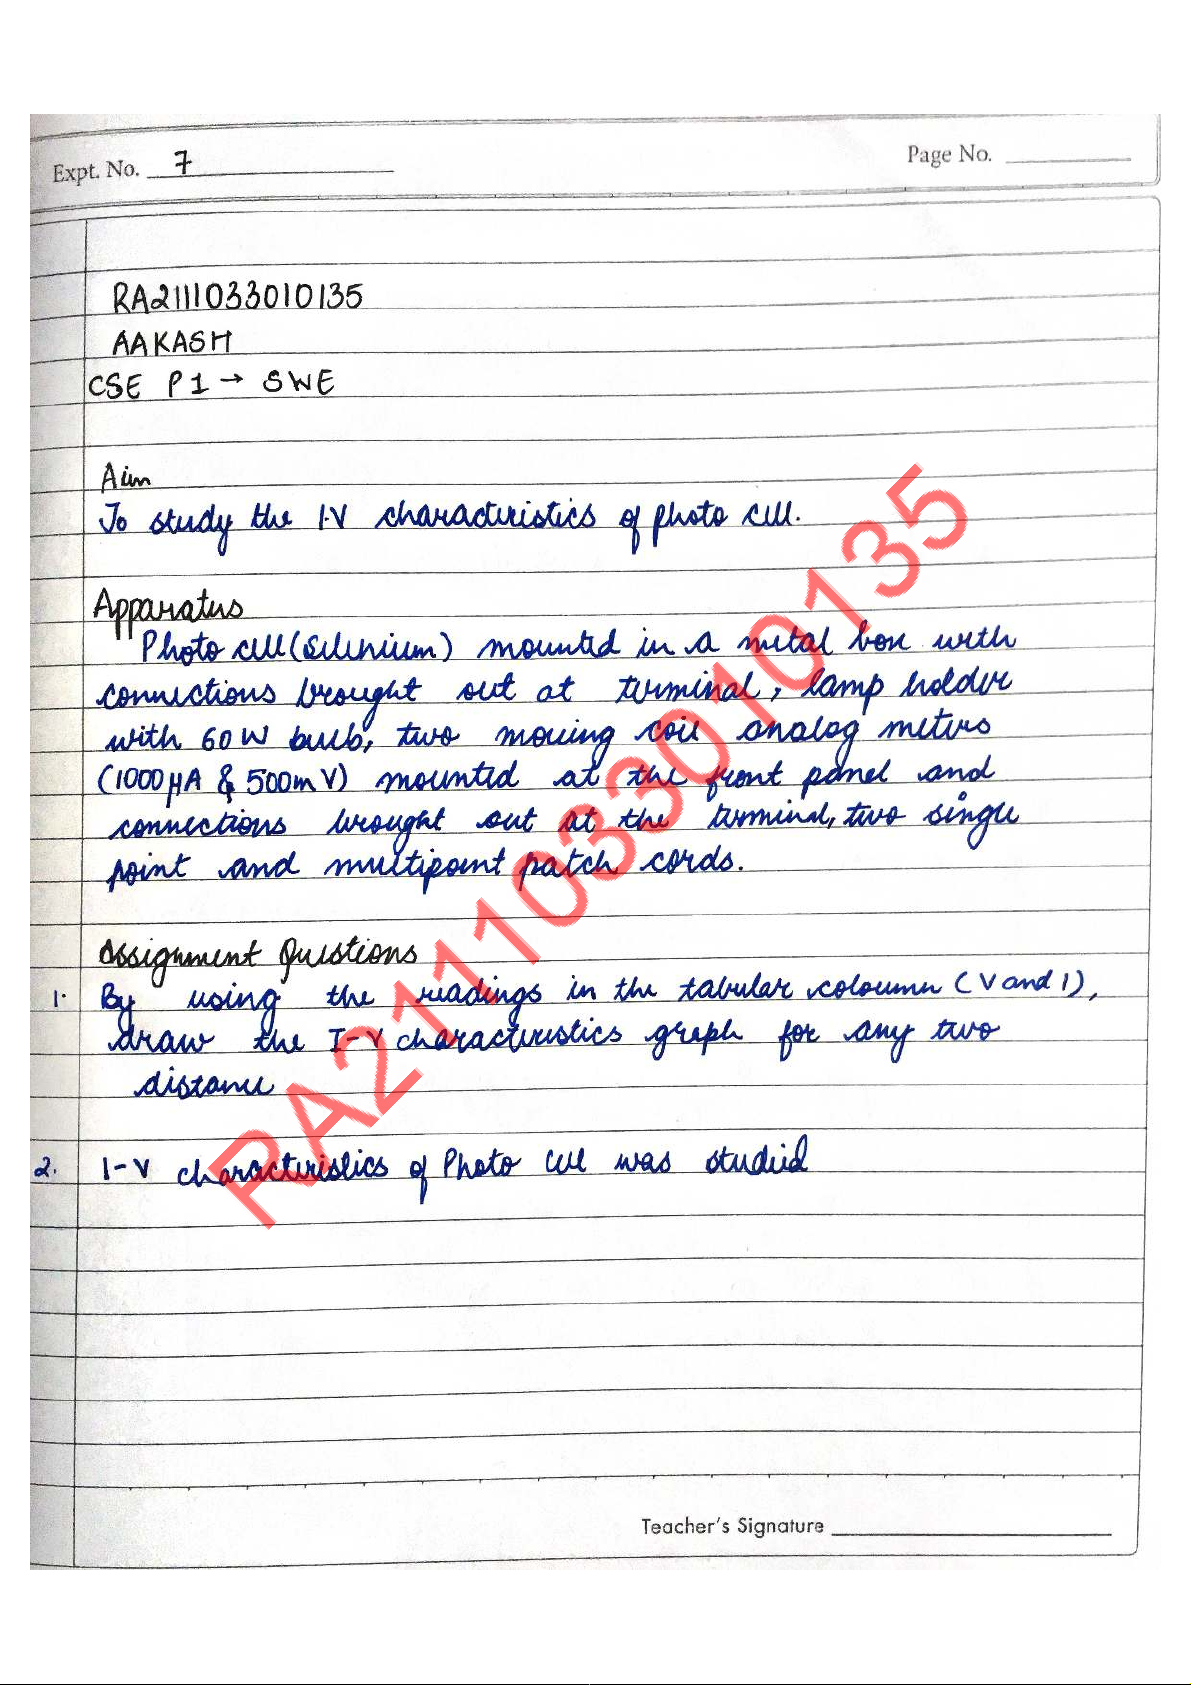 Expt. No. 7
Page No.
RA2111033010135
AAKASH
CSE P1 → SWE
Aim
To study the I-V characteristics of photo cell.
Apparatus
Photo cell (Selenium) mounted in a metal box with
connections brought out at terminal, lamp holder
with 60W bulb, two moving coil analog meters
(1000 μA & 500mV) mounted at the front panel and
connections brought out at the terminal, two single
point and multipoint patch cords.
Assignment Questions
1. By using the readings in the tabular coloumn (V and I),
draw the I-V characteristics graph for any two
distance
2. I-V characteristics of Photo cell was studied
RA2111033010135
Teacher's Signature